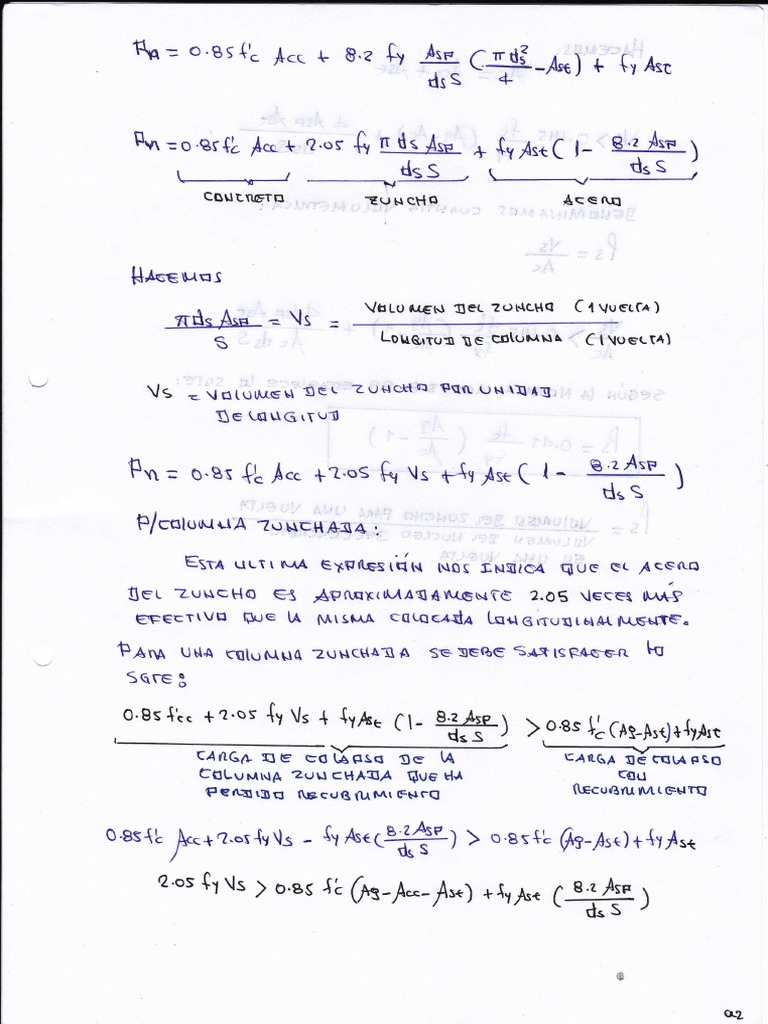 Pn = 0.85 f'c Acc + 8.2 fy Asp/(ds S) (π ds²/4 - Ast) + fy Ast
Pn = 0.85 f'c Acc + 2.05 fy π ds Asp/(ds S) + fy Ast (1 - 8.2 Asp/(ds S))
CONCRETO ZUNCHO ACERO
HACEMOS
π ds Asp/S = Vs = VOLUMEN DEL ZUNCHO (1 VUELTA)/LONGITUD DE COLUMNA (1 VUELTA)
Vs = VOLUMEN DEL ZUNCHO POR UNIDAD
DE LONGITUD
Pn = 0.85 f'c Acc + 2.05 fy Vs + fy Ast (1 - 8.2 Asp/(ds S))
P/COLUMNA ZUNCHADA:
ESTA ULTIMA EXPRESIÓN NOS INDICA QUE EL ACERO
DEL ZUNCHO ES APROXIMADAMENTE 2.05 VECES MÁS
EFECTIVO QUE LA MISMA COLOCADA LONGITUDINALMENTE.
PARA UNA COLUMNA ZUNCHADA SE DEBE SATISFACER LO
SGTE:
0.85 f'cc + 2.05 fy Vs + fy Ast (1 - 8.2 Asp/(ds S)) > 0.85 f'c (Ag-Ast) + fy Ast
CARGA DE COLAPSO DE LA
COLUMNA ZUNCHADA QUE HA
PERDIDO RECUBRIMIENTO
CARGA DE COLAPSO
CON
RECUBRIMIENTO
0.85 f'c Acc + 2.05 fy Vs - fy Ast (8.2 Asp/(ds S)) > 0.85 f'c (Ag-Ast) + fy Ast
2.05 fy Vs > 0.85 f'c (Ag-Acc-Ast) + fy Ast (8.2 Asp/(ds S))
02